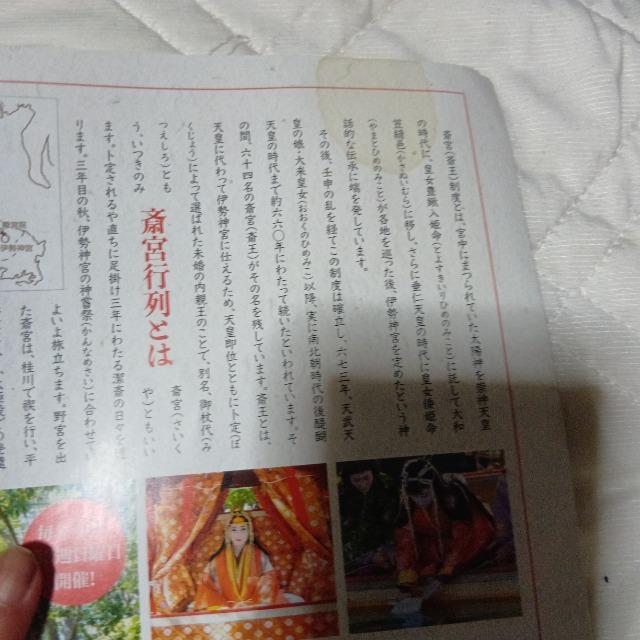 斎宮(斎王)制度とは、宮中にまつられていた大神を崇神天皇
の時代に、皇女豊鍬入姫命(とよすきいりひめのみこと)に託して大和
笠縫邑(かさぬいむら)に移し、さらに垂仁天皇の時代に皇女倭姫命
(やまとひめのみこと)が各地を巡った後、伊勢神宮を定めたという神
話的な伝承に端を発しています。
その後、壬申の乱を経てこの制度は確立し、六七三年、天武天
皇の娘・大来皇女(おおくのひめみこ)以降、実に南北朝時代の後醍醐
天皇の時代まで約六六〇年にわたって続いたといわれています。そ
の間、六十四名の斎宮(斎王)がその名を残しています。斎王とは、
天皇に代わって伊勢神宮に仕えるため、天皇即位とともに卜定(ぼ
くじょう)によって選ばれた未婚の内親王のことで、別名、御杖代(み
つえしろ)とも
斎宮(さいぐ
う、いつきのみ
やともいい
斎宮行列とは
ます。卜定されるや直ちに足掛け三年にわたる潔斎の日々を
ります。三年目の秋、伊勢神宮の神嘗祭(かんなめさい)に合わせて
よいよ旅立ちます。野宮を出
た斎宮は、桂川で禊を行い、平
開催!